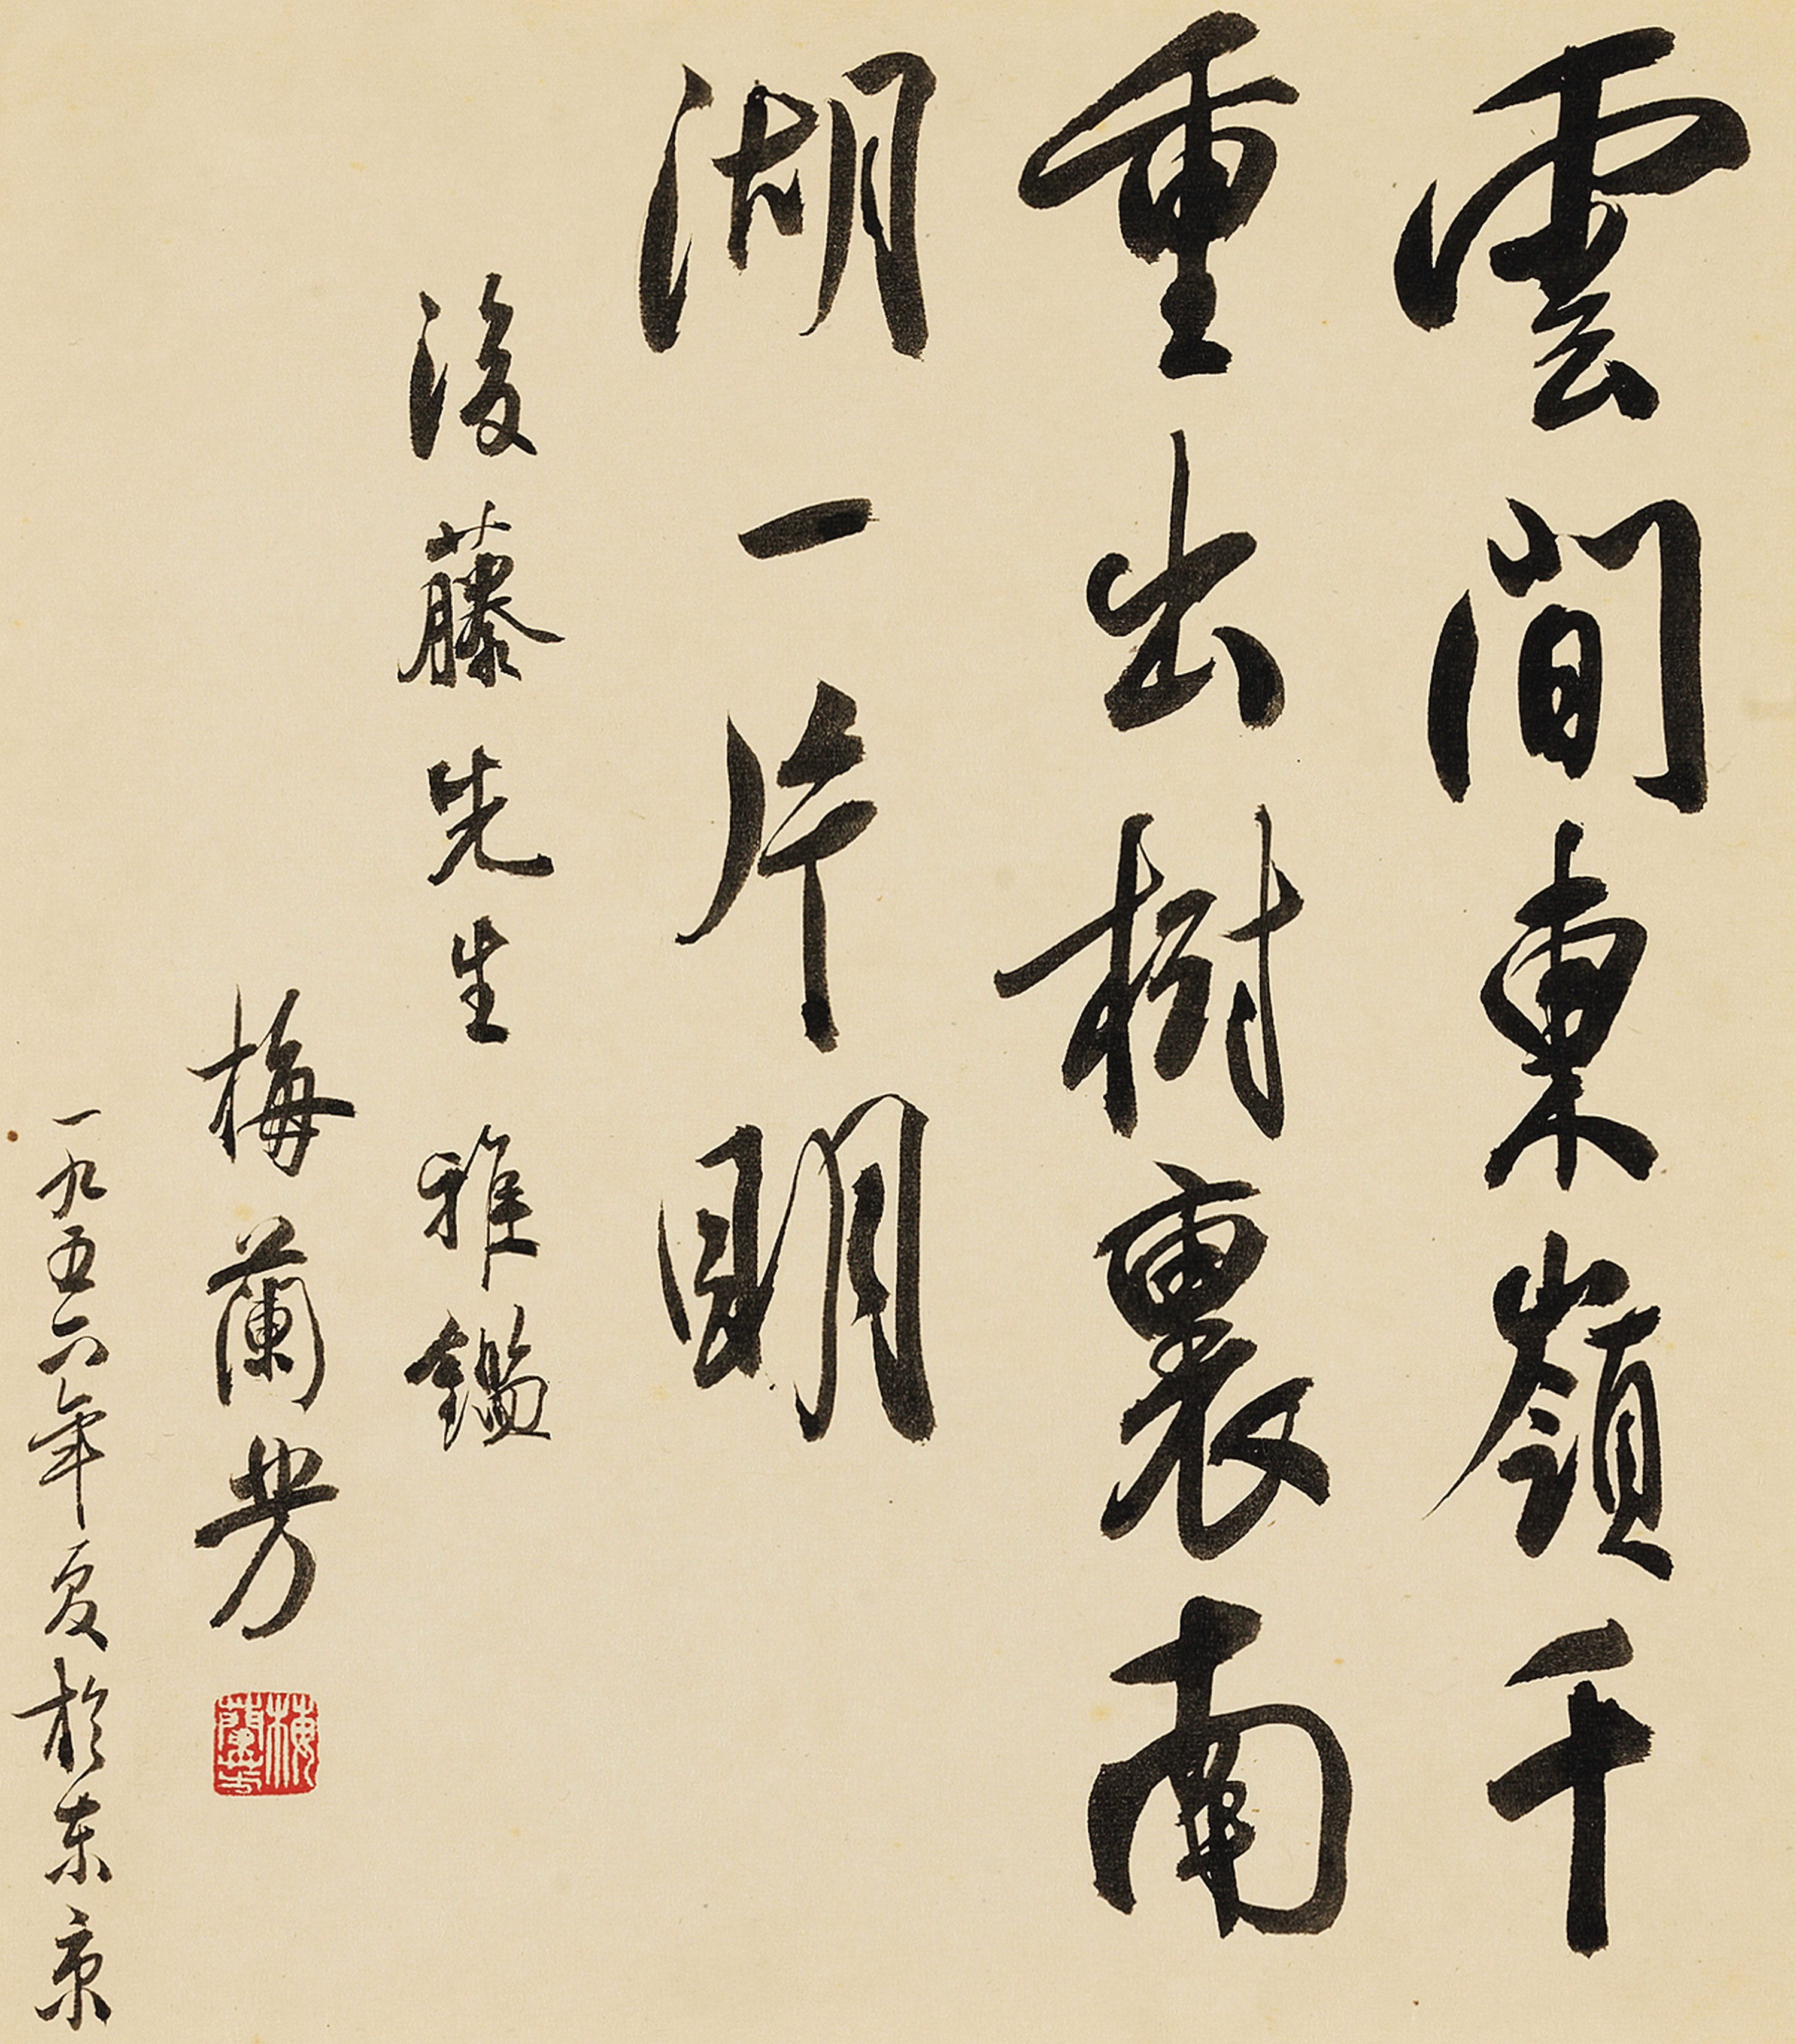 雲間東嶺千
重出樹裏南
湖一片明
後藤先生 雅鑑
梅蘭芳
梅蘭芳
一九五六年夏於东京